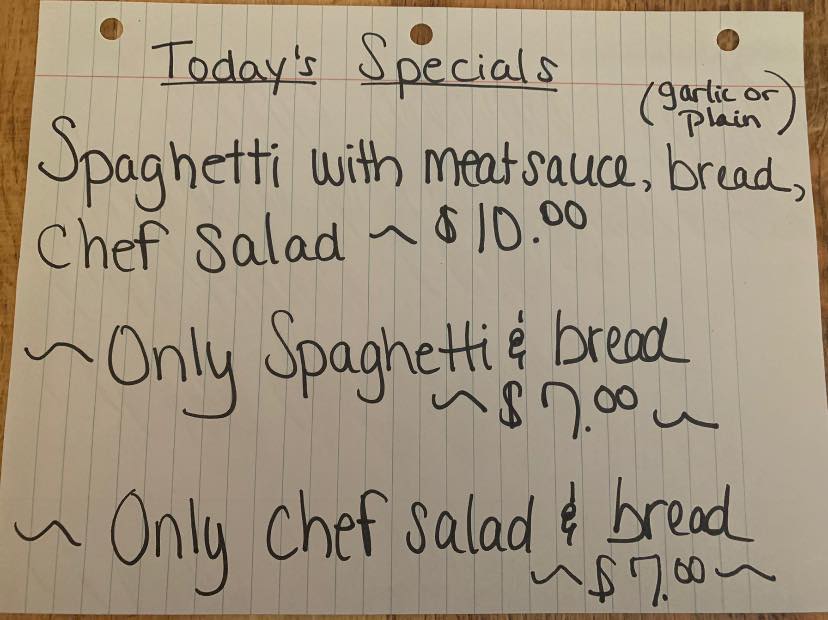 Today's Specials
(garlic or
plain)
Spaghetti with meatsauce, bread,
Chef Salad ~ $10.00
~ Only Spaghetti & bread
~ $7.00 ~
~ Only Chef salad & bread
~ $7.00 ~